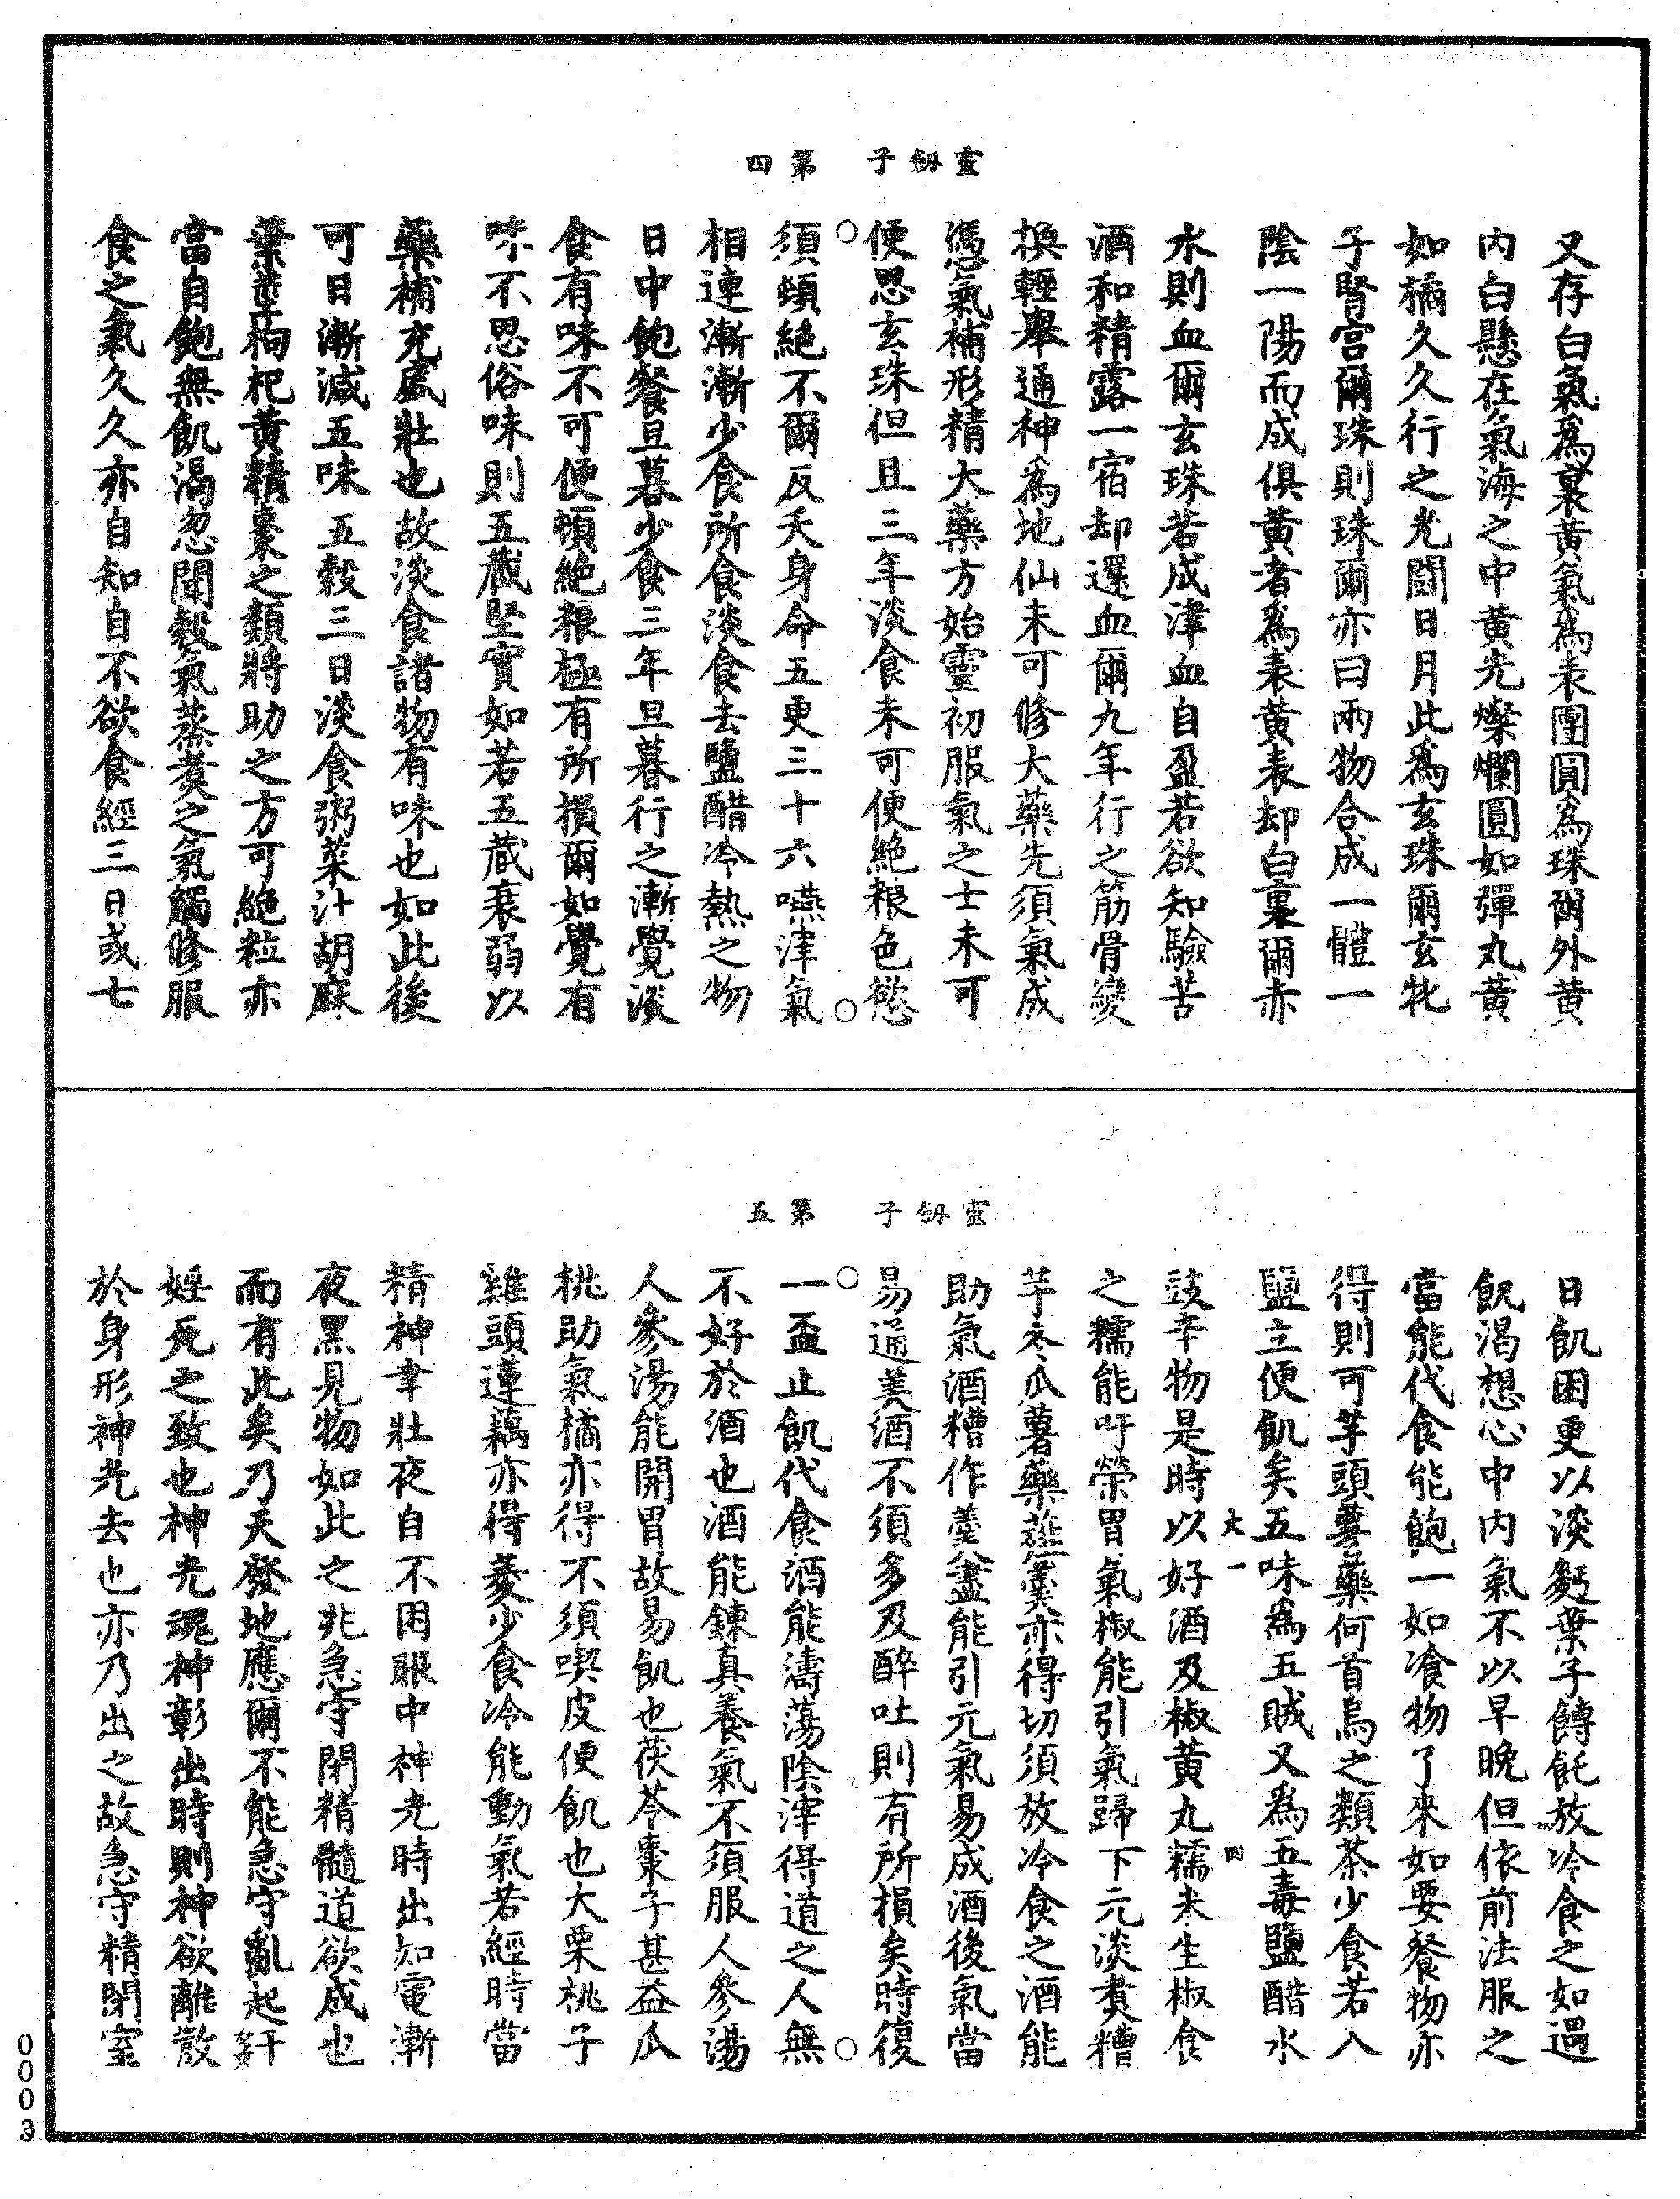 靈劒子　第四
又存白氣爲裏黃氣爲表團圓爲珠爾外黃
內白懸在氣海之中黃光燦爛圓如彈丸黃
如橘久久行之光閮日月此爲玄珠爾玄牝
子腎宮爾珠則珠爾亦曰兩物合成一體一
陰一陽而成俱黃者爲表黃表却白裏爾赤
水則血爾玄珠若成津血自盈若欲知驗苦
酒和精露一宿却還血爾九年行之筋骨變
換輕舉通神爲地仙未可修大藥先須氣成
憑氣補形精大藥方始靈初服氣之士未可
便思玄珠但且三年淡食未可便絕粮色慾
須頓絕不爾反夭身命五更三十六嚥津氣
相連漸漸少食所食淡食去鹽醋冷熱之物
日中飽餐旦暮少食三年旦暮行之漸覺淡
食有味不可便頓絕粮極有所損爾如覺有
味不思俗味則五藏堅實如若五藏衰弱以
藥補充虛壯也故淡食諸物有味也如此後
可日漸減五味五穀三日淡食粥菜汁胡麻
葉堇枸杞黃精棗之類將助之方可絕粒亦
當自飽無飢渴忽聞穀氣蒸煑之氣觸修服
食之氣久久亦自知自不欲食經三日或七
靈劒子　第五
日飢困更以淡麪葉子餺飥放冷食之如遇
飢渴想心中內氣不以早晚但依前法服之
當能代食能飽一如飡物了來如要餐物亦
得則可芋頭薯藥何首烏之類茶少食若入
鹽立便飢矣五味爲五賊又爲五毒鹽醋水
大一　四
豉辛物是時以好酒及椒黃丸糯米生椒食
之糯能吁榮胃氣椒能引氣歸下元淡煑糟
芋冬瓜薯藥薤羹亦得切須放冷食之酒能
助氣酒糟作羹盡能引元氣易成酒後氣當
易通美酒不須多及醉吐則有所損矣時復
一盃止飢代食酒能濤蕩陰滓得道之人無
不好於酒也酒能鍊真養氣不須服人參湯
人參湯能開胃故易飢也茯苓棗子甚益瓜
桃助氣橘亦得不須喫皮便飢也大栗桃子
雞頭蓮藕亦得菱少食冷能動氣若經時當
精神聿壯夜自不困眼中神光時出如電漸
夜黑見物如此之兆急守閉精髓道欲成也
而有此矣乃天發地應爾不能急守亂起奸
婬死之致也神光魂神彰出時則神欲離散
於身形神光去也亦乃出之故急守精閉室
0003